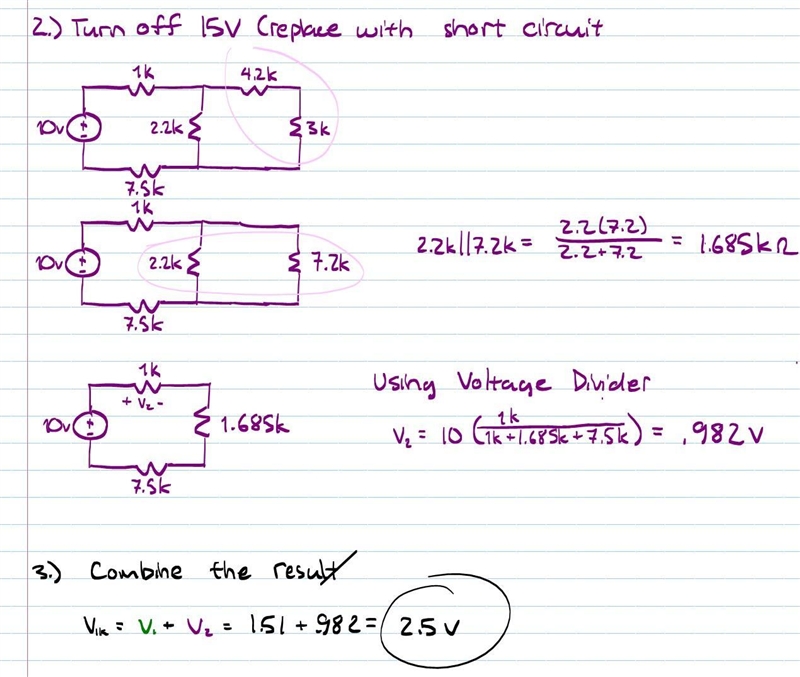 2.) Turn off 15V (replace with short circuit
1k 4.2k
10v 2.2k 3k
7.5k
1k
10v 2.2k 7.2k
7.5k
2.2k||7.2k = 2.2(7.2) / 2.2+7.2 = 1.685kΩ
1k
+ V₂ -
10v 1.685k
7.5k
Using Voltage Divider
V₂ = 10 (1k / 1k+1.685k+7.5k) = .982V
3.) Combine the result
V1k = V₁ + V₂ = 1.51 + .982 = 2.5V